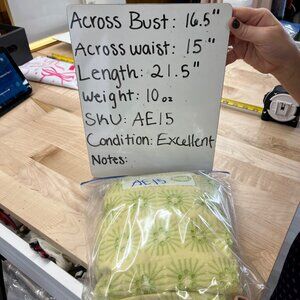 Across Bust: 16.5"
Across waist: 15"
Length: 21.5"
Weight: 10 oz
SKU: AE15
Condition: Excellent
Notes:
AE15